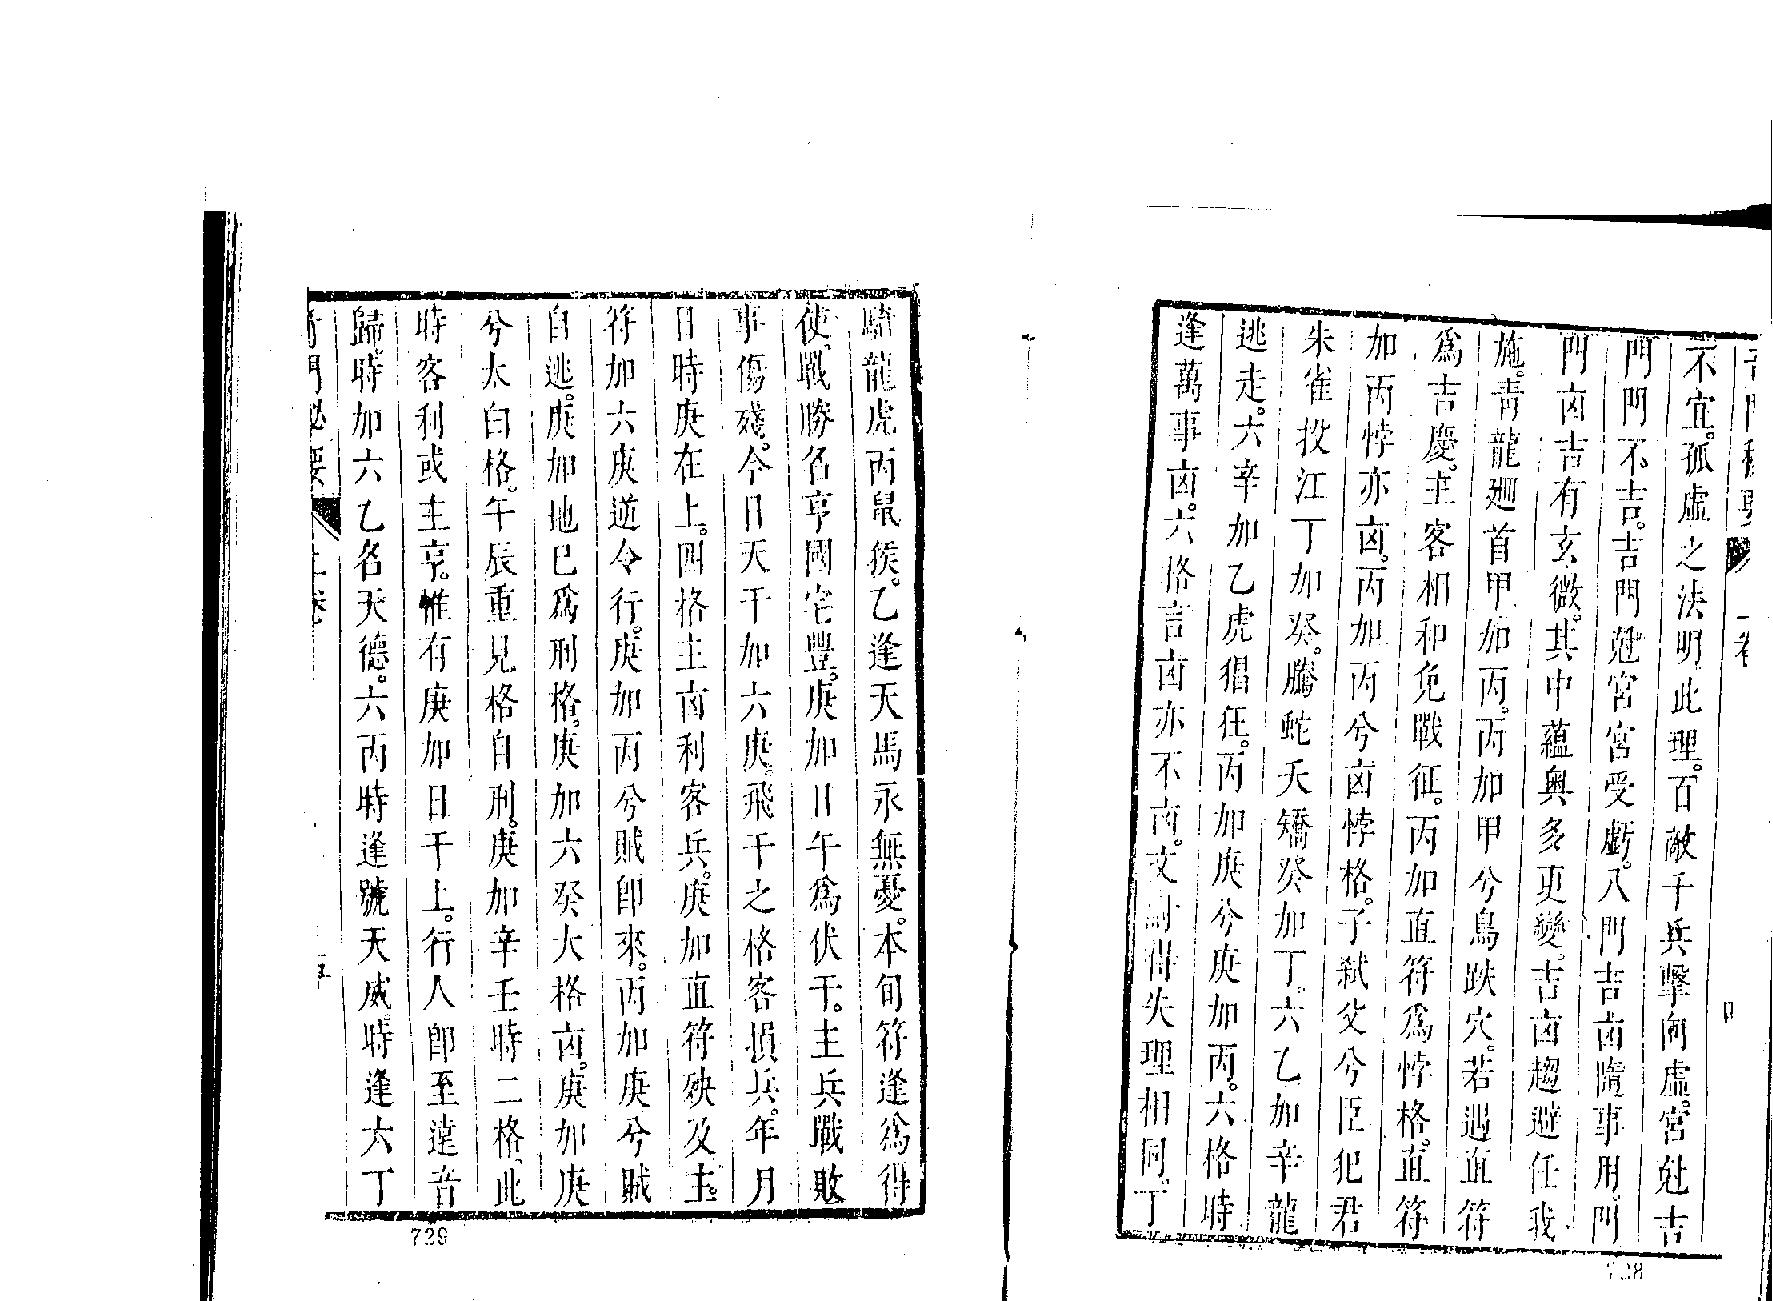 不宜。孤虛之法明此理。百敵千兵擊向虛。宮尅吉
門門不吉。吉門尅宮宮受虧。八門吉凶隨事用。門
門凶吉有玄微。其中蘊奥多更變。吉凶趨避任我
施。青龍廻首甲加丙。丙加甲兮鳥跌穴。若遇直符
爲吉慶。主客相和免戰征。丙加直符爲悖格。直符
加丙悖亦凶。丙加丙兮凶悖格。子弒父兮臣犯君
朱雀投江丁加癸。騰蛇夭矯癸加丁。六乙加辛龍
逃走。六辛加乙虎猖狂。丙加庚兮庚加丙。六格時
逢萬事凶。六格言凶亦不凶。文 得失理相同。丁
728
騎龍虎丙鼠猴。乙逢天馬永無憂。本旬符逢爲得
使。戰勝名亨國宅豐。庚加日午爲伏干。主兵戰敗
事傷殘。今日天干加六庚。飛干之格客損兵。年月
日時庚在上。四格主凶利客兵。庚加直符殃及主。
符加六庚逆令行。庚加丙兮賊即來。丙加庚兮賊
自逃。庚加地已爲刑格。庚加六癸大格凶。庚加庚
兮太白格。午辰重見格自刑。庚加辛壬時二格。此
時客利或主亨。惟有庚加日干上。行人即至遠音
歸。時加六乙名天德。六丙時逢號天威。時逢六丁
門秘要 上卷 五
729